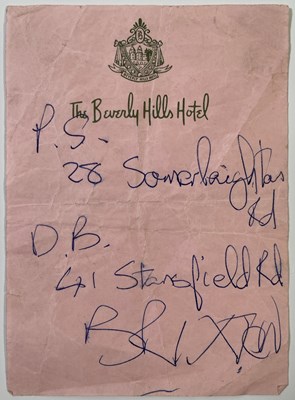 The Beverly Hills Hotel
P.S.
28 Somerleighton
Rd
D.B.
41 Stansfield Rd
BRIXTON